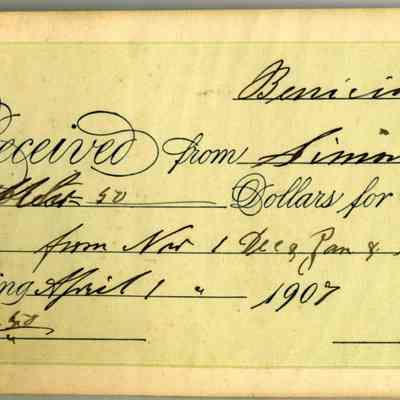 Benicia
eceived from Simon
50 Dollars for
from Nov 1 Dec, Jan &
ing April 1 " 1907
50